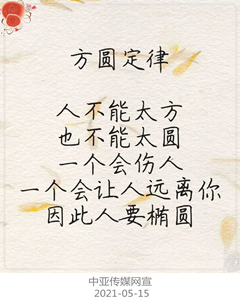 方圆定律
人不能太方
也不能太圆
一个会伤人
一个会让人远离你
因此人要椭圆
中亚传媒网宣
2021-05-15